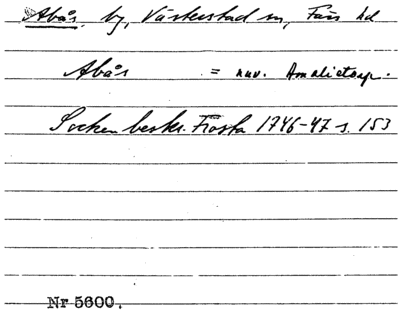 Abås, by, Västerstad sn, Färs hd
Abås = nuv. Amalietorp.
Sockenbeskr. Frosta 1746-47 s. 153
Nr 5600.